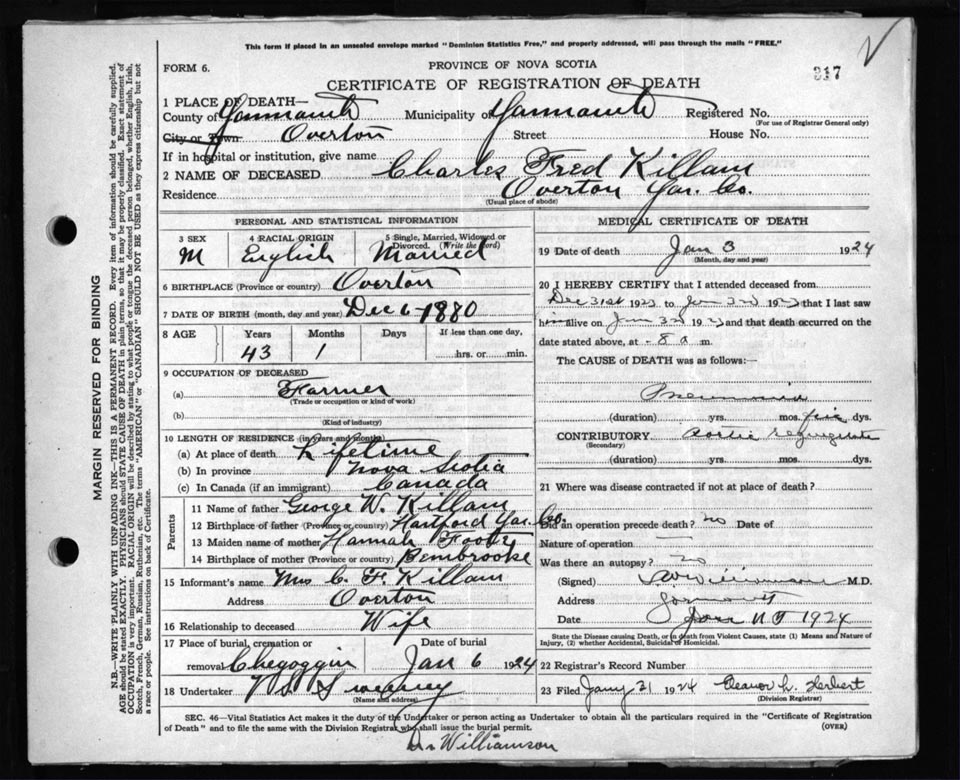 This form if placed in an unsealed envelope marked "Dominion Statistics Free," and properly addressed, will pass through the mails "FREE."
PROVINCE OF NOVA SCOTIA
FORM 6.
CERTIFICATE OF REGISTRATION OF DEATH
317
MARGIN RESERVED FOR BINDING
N.B.—WRITE PLAINLY WITH UNFADING INK—THIS IS A PERMANENT RECORD. Every item of information should be carefully supplied.
AGE should be stated EXACTLY. PHYSICIANS should STATE CAUSE OF DEATH in plain terms, so that it may be properly classified. Exact statement of
OCCUPATION is very important. RACIAL ORIGIN will be described by stating to what people or race the deceased person belonged, whether English, Irish,
Scotch, French, German, Russian, Ruthenian, etc. The terms "AMERICAN" or "CANADIAN" SHOULD NOT BE USED as they express citizenship but not
a race or people. See instructions on back of Certificate.
1 PLACE OF DEATH—
County of Yarmouth Municipality of Yarmouth Registered No.
(For use of Registrar General only)
City or Town Overton Street House No.
If in hospital or institution, give name
2 NAME OF DECEASED Charles Fred Killam
Residence Overton Yar. Co.
(Usual place of abode)
PERSONAL AND STATISTICAL INFORMATION
3 SEX M
4 RACIAL ORIGIN English
5 Single, Married, Widowed or Divorced. (Write the word) Married
6 BIRTHPLACE (Province or country) Overton
7 DATE OF BIRTH (month, day and year) Dec 6 - 1880
8 AGE Years Months Days If less than one day,
43 1 hrs. or min.
9 OCCUPATION OF DECEASED
(a) Farmer
(Trade or occupation or kind of work)
(b)
(Kind of industry)
10 LENGTH OF RESIDENCE (in years and months)
(a) At place of death Lifetime
(b) In province Nova Scotia
(c) In Canada (if an immigrant) Canada
Parents
11 Name of father George W. Killam
12 Birthplace of father (Province or country) Hartford Yar. Co.
13 Maiden name of mother Hannah
14 Birthplace of mother (Province or country) Pembrooke
15 Informant's name Mrs C. F. Killam
Address Overton
16 Relationship to deceased Wife
17 Place of burial, cremation or removal Chegoggin
Date of burial Jan 6 1924
18 Undertaker Sweeney
(Name and address)
MEDICAL CERTIFICATE OF DEATH
19 Date of death Jan 3 1924
(Month, day and year)
20 I HEREBY CERTIFY that I attended deceased from
Dec 31st 1923 to Jan 3rd 192 that I last saw
him alive on Jan 3rd 192 and that death occurred on
date stated above, at - 8 a m.
The CAUSE OF DEATH was as follows:—
Pneumonia
(duration) yrs. mos. five dys.
CONTRIBUTORY
(Secondary)
(duration) yrs. mos. dys.
21 Where was disease contracted if not at place of death?
Did an operation precede death? no Date of
Nature of operation —
Was there an autopsy? no
(Signed) Williamson M.D.
Address Yarmouth
Date Jan 1924
State the Disease causing Death, or in death from Violent Causes, state (1) Means and Nature of
Injury, (2) whether Accidental, Suicidal or Homicidal.
22 Registrar's Record Number
23 Filed Jany 31 1924 Eleanor L. Herbert
(Division Registrar)
SEC. 46—Vital Statistics Act makes it the duty of the Undertaker or person acting as Undertaker to obtain all the particulars required in the "Certificate of Registration
of Death" and to file the same with the Division Registrar who shall issue the burial permit. (OVER)
Dr Williamson